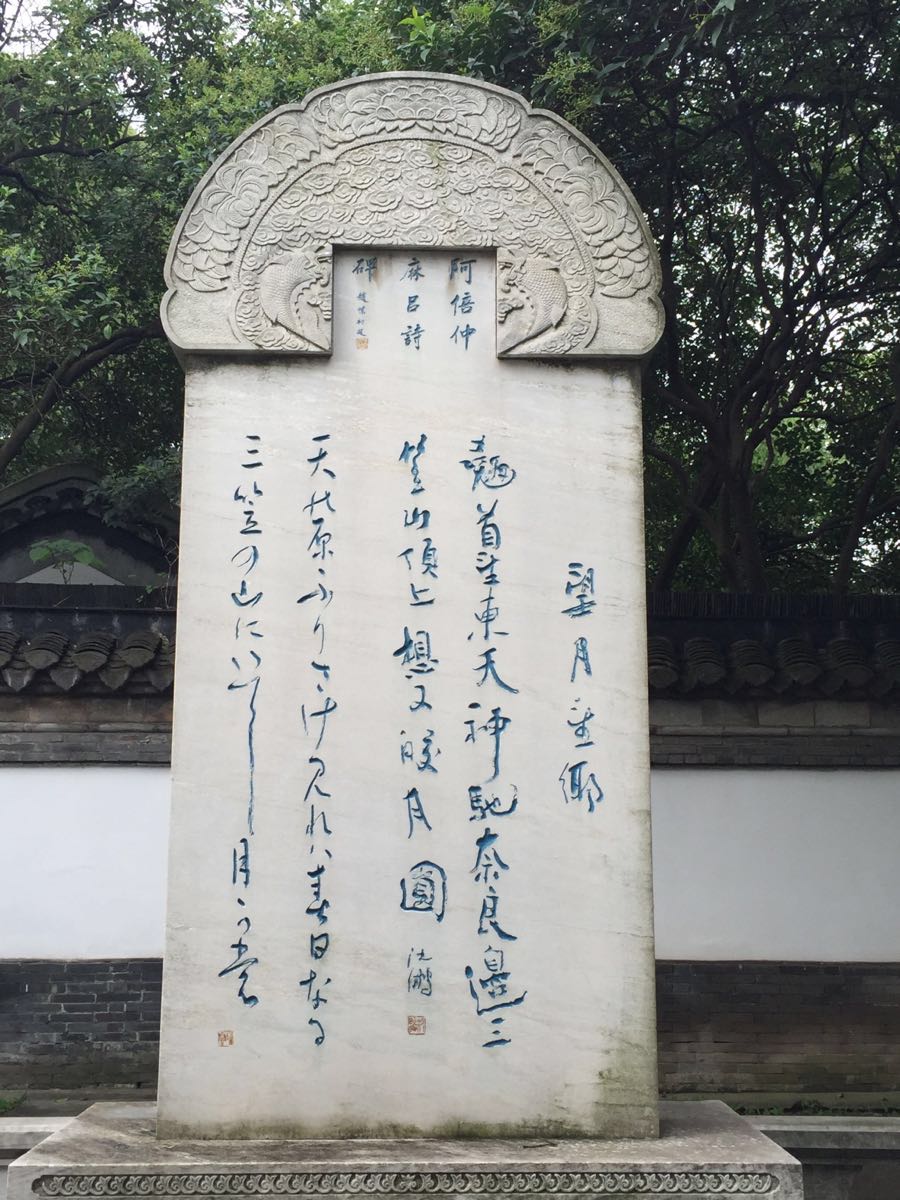 阿倍仲
麻呂詩
碑
趙樸初題
望月望鄉
翹首望東天神馳奈良邊三
笠山頂上想又皎月圓
沈鵬
天の原ふりさけ見れハ春日なる
三笠の山にいてし月可も